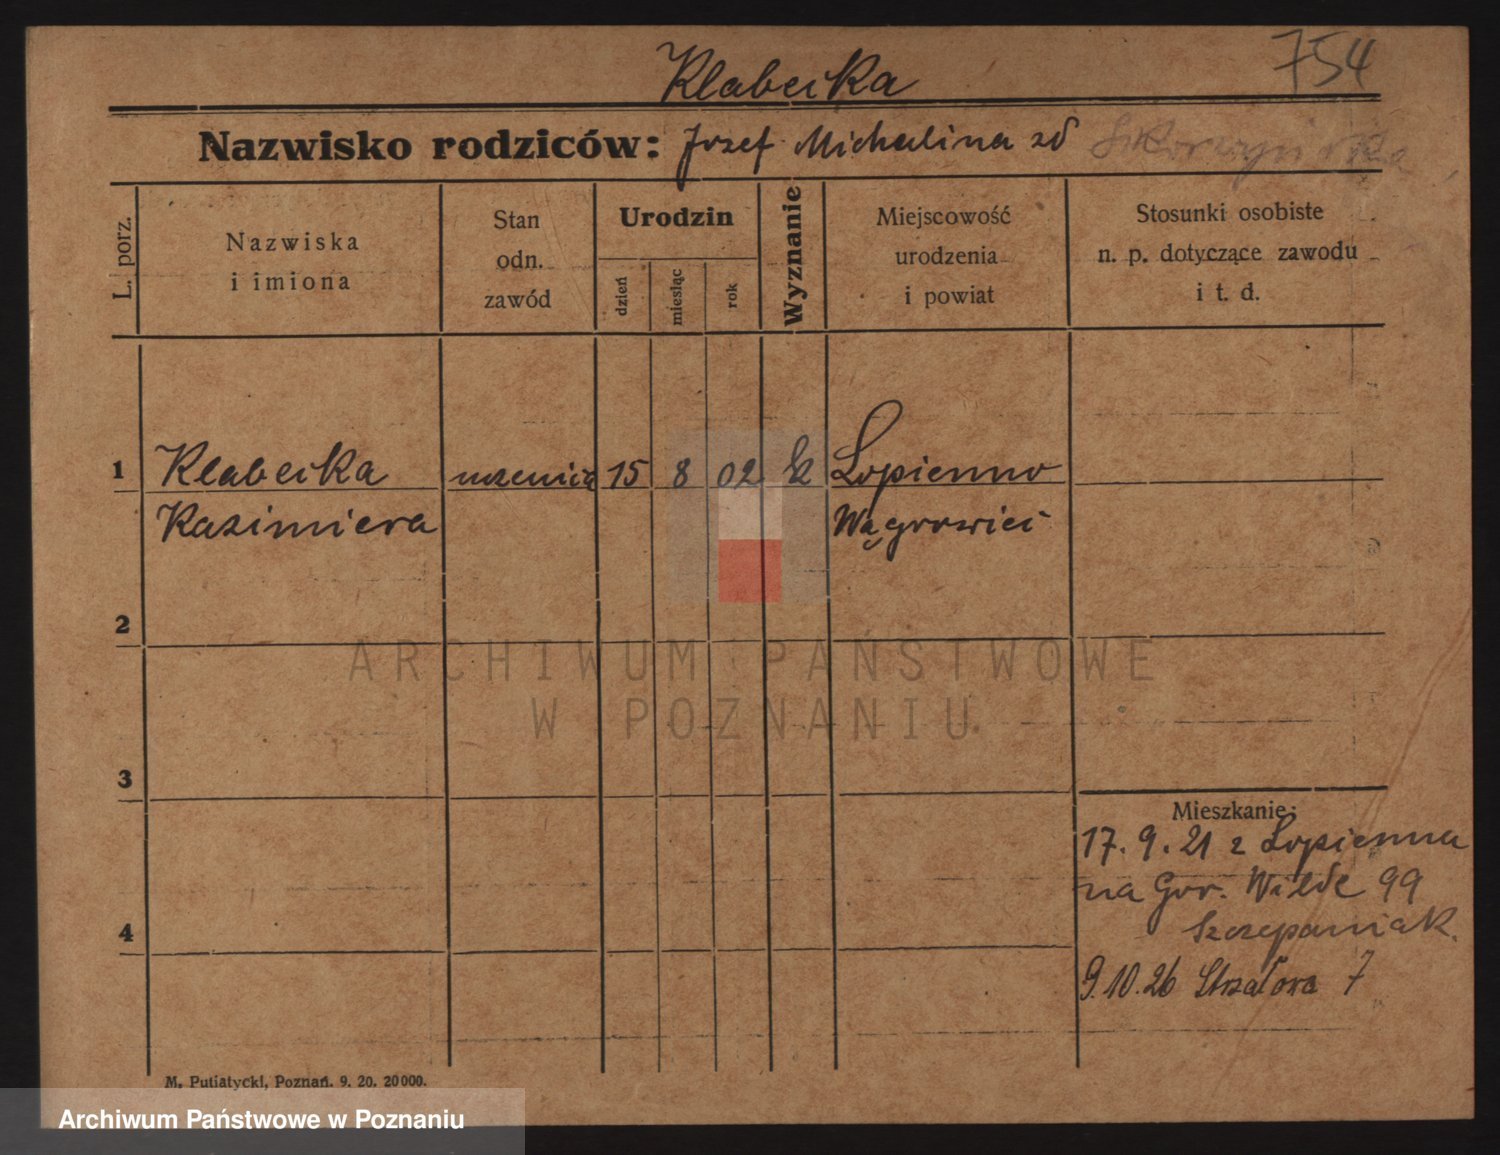 Klabecka
754
Nazwisko rodziców: Jozef Michalina zd
L. porz.
Nazwiska
i imiona
Stan
odn.
zawód
Urodzin
dzień
miesiąc
rok
Wyznanie
Miejscowość
urodzenia
i powiat
Stosunki osobiste
n. p. dotyczące zawodu
i t. d.
1 Klabecka uczenica 15 8 02 k Łopienno
Kazimiera Wągrowiec
2
ARCHIWUM PAŃSTWOWE
W POZNANIU
3
Mieszkanie:
17. 9. 21 z Łopienna
na Gór. Wilde 99
4
Szczepaniak.
9.10.26 Strzałowa 7
M. Putiatycki, Poznań. 9. 20. 20000.
Archiwum Państwowe w Poznaniu